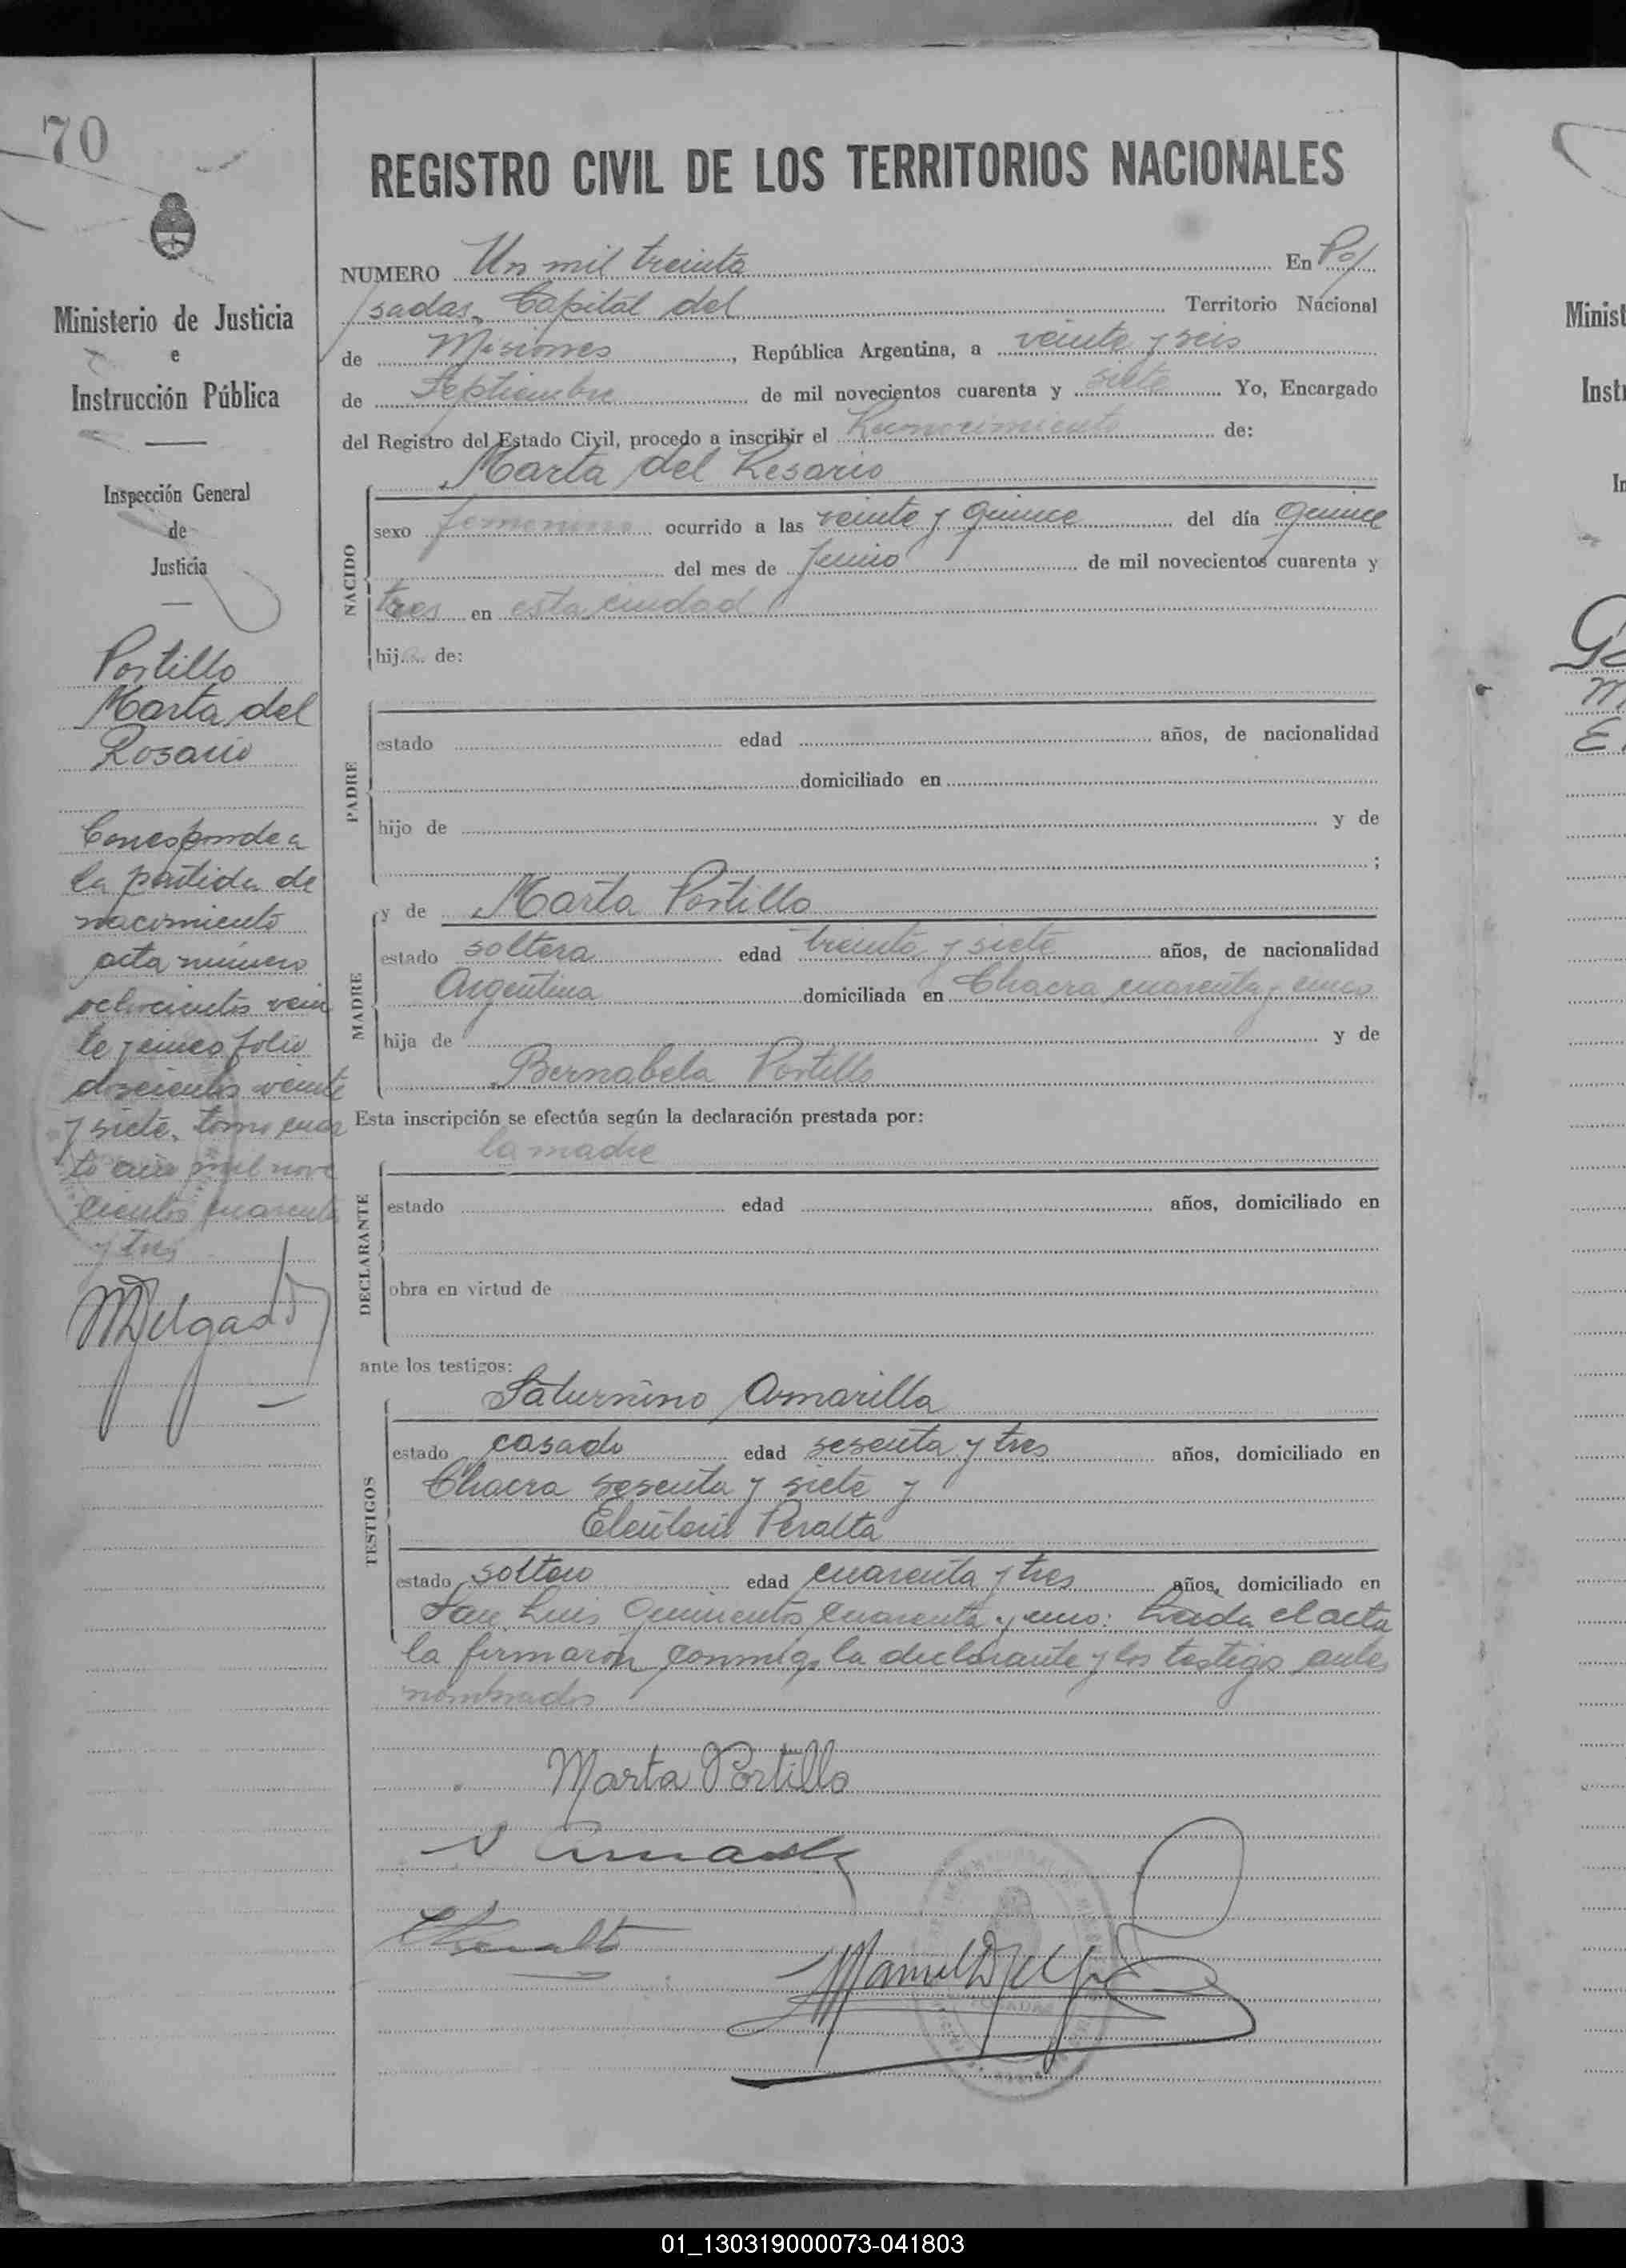 70
REGISTRO CIVIL DE LOS TERRITORIOS NACIONALES
NUMERO Un mil treinta En Po/
/sadas, Capital del Territorio Nacional
de Misiones, República Argentina, a veinte y seis
de Septiembre de mil novecientos cuarenta y siete Yo, Encargado
del Registro del Estado Civil, procedo a inscribir el Reconocimiento de:
Marta del Rosario
NACIDO
sexo femenino ocurrido a las veinte y quince del día quince
del mes de Junio de mil novecientos cuarenta y
tres en esta ciudad
hija de:
PADRE
estado edad años, de nacionalidad
domiciliado en
hijo de y de
;
MADRE
y de Marta Portillo
estado soltera edad treinta y siete años, de nacionalidad
Argentina domiciliada en Chacra cuarenta y cinco
hija de y de
Bernabela Portillo
Esta inscripción se efectúa según la declaración prestada por:
la madre
DECLARANTE
estado edad años, domiciliado en
obra en virtud de
ante los testigos:
TESTIGOS
Saturnino Amarilla
estado casado edad sesenta y tres años, domiciliado en
Chacra sesenta y siete y
Eleuterio Peralta
estado soltero edad cuarenta y tres años, domiciliado en
San Luis quinientos cuarenta y cinco: Leida el acta
la firmaron conmigo la declarante y los testigos antes
nombrados
Marta Portillo
Ministerio de Justicia
e
Instrucción Pública
Inspección General
de
Justicia
Portillo
Marta del
Rosario
Corresponde a
la partida de
nacimiento
acta número
ochocientos vein
te y cinco folio
doscientos veinte
y siete, tomo cuar
to año mil nove
cientos cuarenta
y tres
MDelgado
POSADAS
Minist
Instr
In
01_130319000073-041803